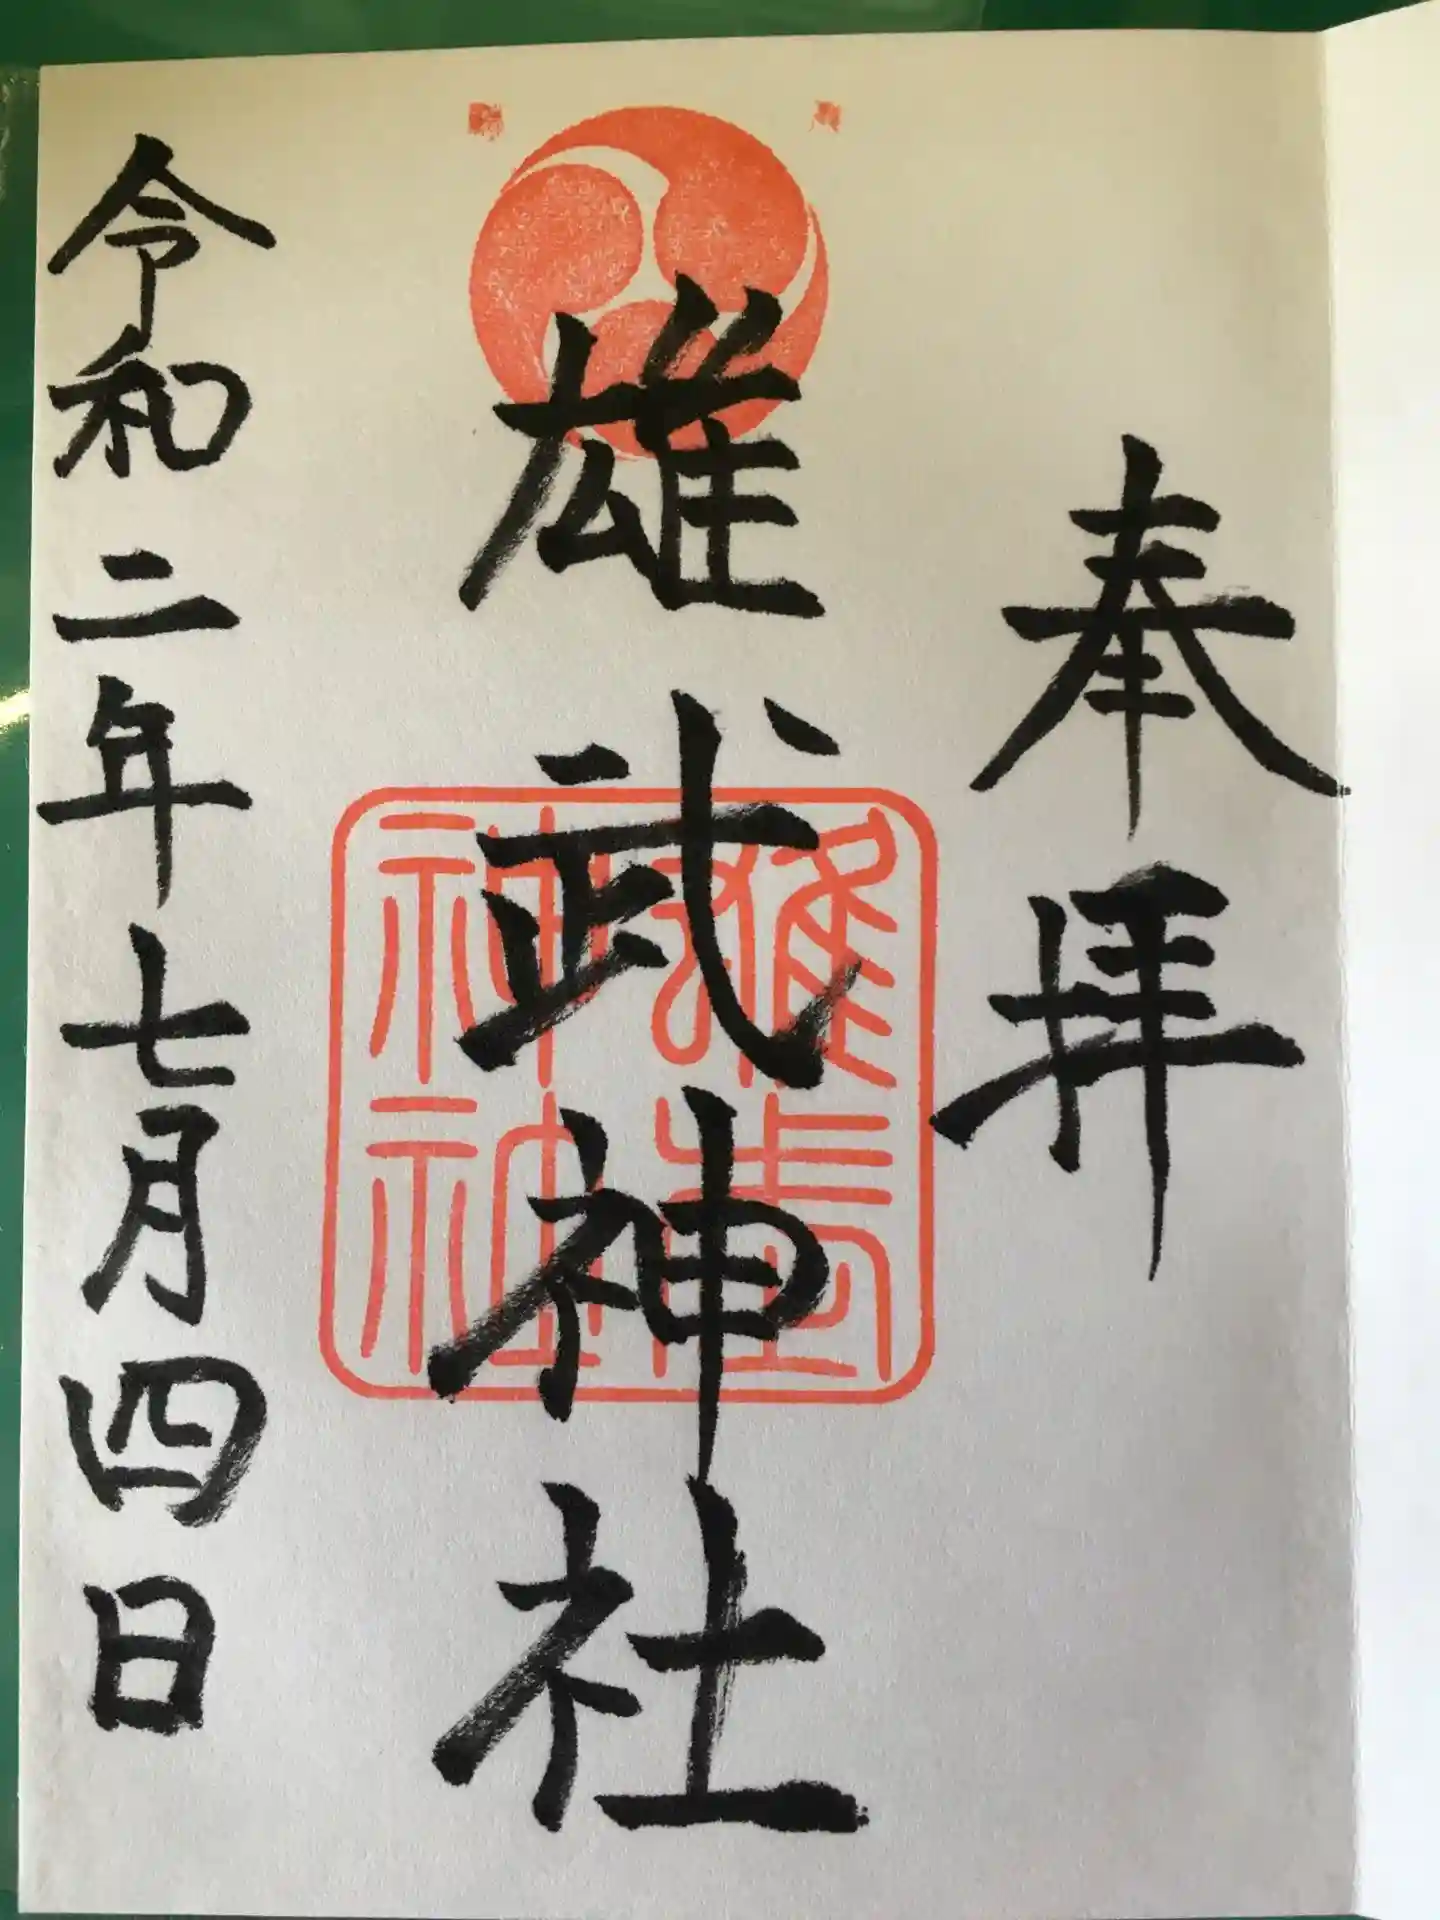 奉拝
雄武神社
雄武神社
令和二年七月四日